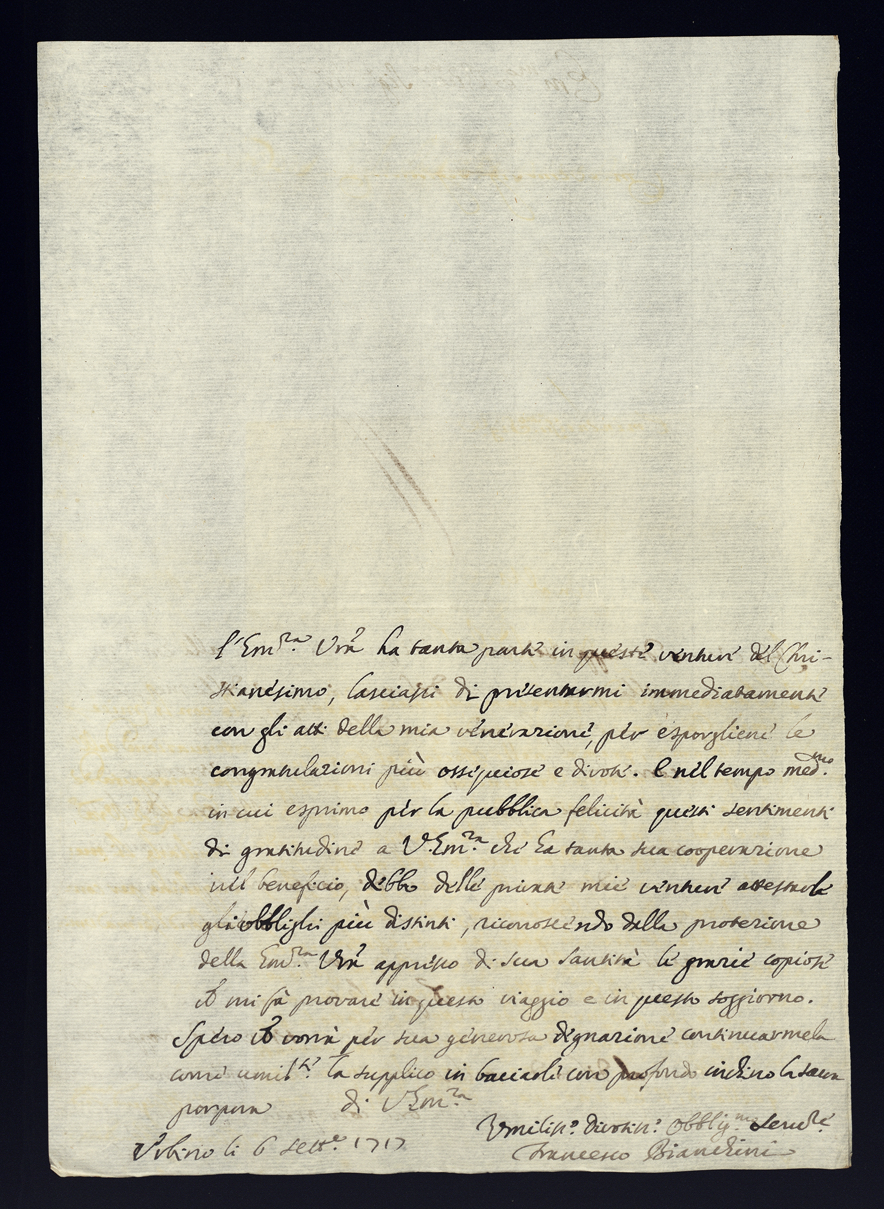 l'Em.za Vra ha tanta parte in queste venture del Chri-
stianesimo, lasciassi di presentarmi immediatamente
con gli atti della mia venerazione, per esporgliene le
congratulazioni più ossequiose e divote. E nel tempo med.mo
in cui esprimo per la pubblica felicità questi sentimenti
di gratitudine a V. Em.za che ha tanta sua cooperazione
nel beneficio, debbo delle private mie venture attestarle
gli obblighi più distinti, riconoscendo dalla protezione
della Em.za Vra appresso di Sua Santità le grazie copiose
mi fa provare in questo viaggio e in questo soggiorno.
Spero vorrà per sua generosa degnazione continuarmela
come umil.te la supplico in baciarle con profondo inchino la sacra
porpora di V. Em.za
Umiliss.o divotiss.o Obblig.mo Serv.re
Urbino li 6 sett.e 1717
Francesco Bianchini